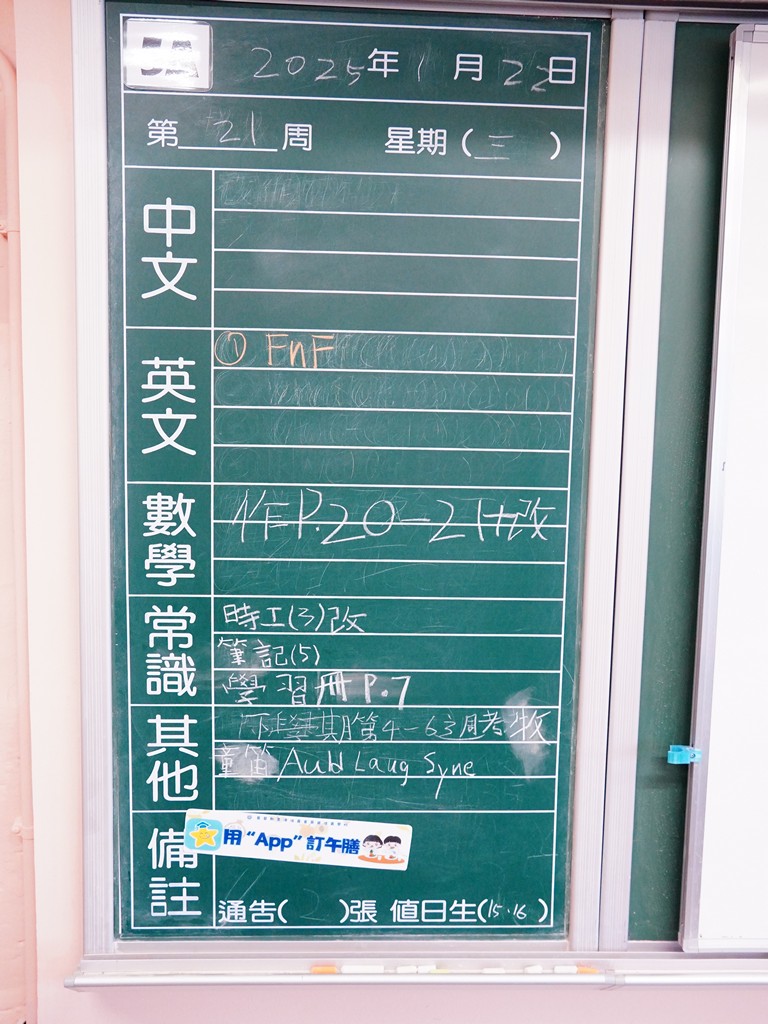 2025年1月22日
第21周 星期(三)
中文
英文
① FnF
數學
作P.20-21+改
常識
時工(3)改
筆記(5)
學習冊P.7
其他
學期第4-6 周考
牧童笛 Auld Laug Syne
備註
用“App”訂午膳
通告(2)張 值日生(15.16)